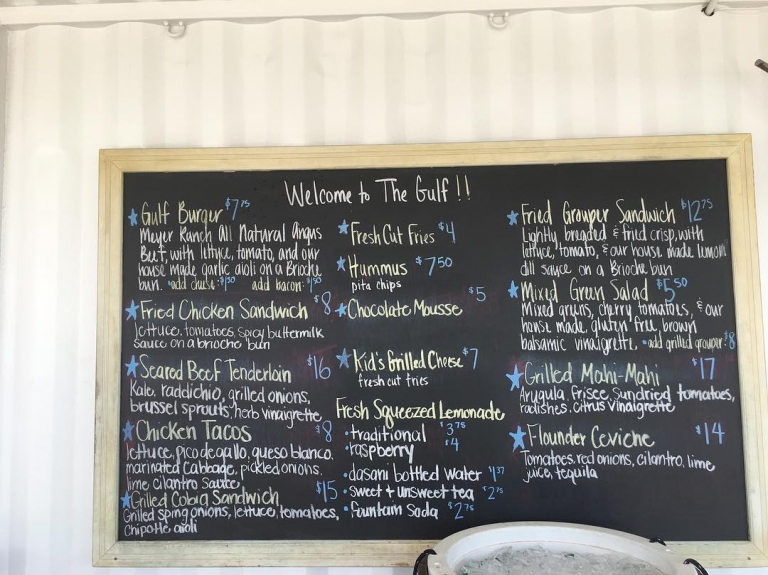 Welcome to The Gulf!!
Gulf Burger $7.75
Meyer Ranch All Natural Angus
Beef, with lettuce, tomato, and our
house made garlic aioli on a Brioche
bun. •add cheese: $1.50 add bacon: $1.50
Fried Chicken Sandwich $8
lettuce, tomatoes, spicy buttermilk
sauce on a brioche bun
Seared Beef Tenderloin $16
Kale, raddichio, grilled onions,
brussel sprouts, herb vinaigrette
Chicken Tacos $8
lettuce, pico de gallo, queso blanco,
marinated cabbage, pickled onions,
lime cilantro sauce
Grilled Cobia Sandwich $15
Grilled spring onions, lettuce, tomatoes,
chipotle aioli
Fresh Cut Fries $4
Hummus $7.50
pita chips
Chocolate Mousse $5
Kid's Grilled Cheese $7
fresh cut fries
Fresh Squeezed Lemonade
•traditional $3.75
•raspberry $4
•dasani bottled water $1.37
•sweet + unsweet tea $2.75
•fountain soda $2.75
Fried Grouper Sandwich $12.75
Lightly breaded & fried crisp, with
lettuce, tomato, & our house made lemon
dill sauce on a Brioche bun
Mixed Green Salad $5.50
Mixed greens, cherry tomatoes, & our
house made, gluten free, brown
balsamic vinaigrette. •add grilled grouper: $8
Grilled Mahi-Mahi $17
Arugula, frisee, sundried tomatoes,
radishes, citrus vinaigrette
Flounder Ceviche $14
Tomatoes, red onions, cilantro, lime
juice, tequila